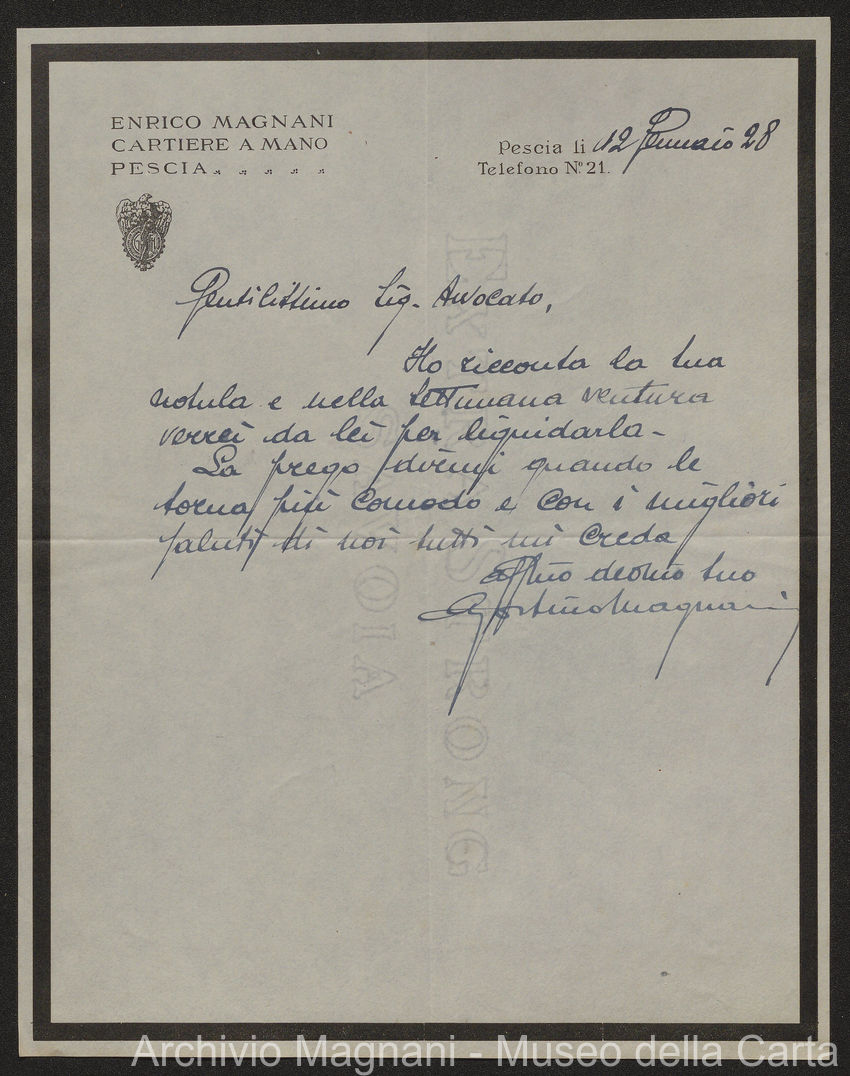 ENRICO MAGNANI
CARTIERE A MANO
PESCIA
Pescia li 12 Gennaio 28
Telefono Nº 21.
Gentilissimo Sig. Avvocato,
Ho ricevuta la sua
notula e nella settimana ventura
verrei da lei per liquidarla -
La prego dirmi quando le
torna più comodo e con i migliori
saluti di noi tutti mi creda
Affmo devmo suo
Agostino Magnani
EXTRA STRONG
SAVOIA
Archivio Magnani - Museo della Carta